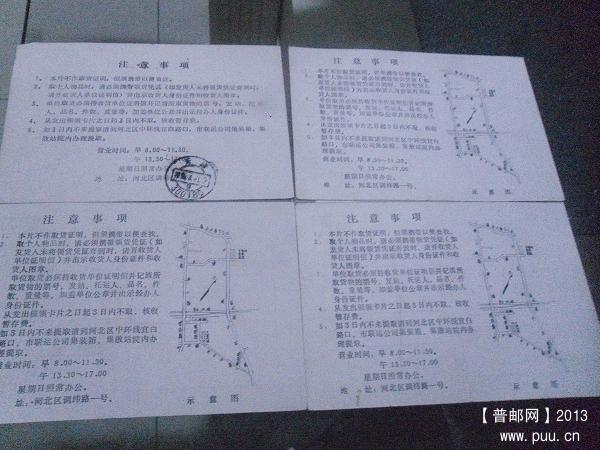 注意事项
1、本片不作取货证明，但须携带以便查找。
2、取个人物品时，请必须携带领货凭证（如发货人未将领货凭证寄到时，
请开收货人单位证明）并出示收货人身份证件和收货人图章。
3、单位取货必须持收货单位证明并记清所取货物的票号，发站、托运
人、品名、件数、重量等，加盖单位公章并出示经办人身份证件。
4、从发出催领卡片之日起3日内不取，核收暂存费。
5、如3日内不来提取请到河北区中环线宜白路口，市联运公司集装箱、集
散站院内办理提取。
营业时间：早 8.00～11.30.
午 13.30～17
星期日照常办公
地 址：河北区调纬
注意事项
本片不作取货证明，但须携带以便查找。
取个人物品时，请必须携带领货凭证（如
发货人未将领货凭证寄到时，请开收货人
单位证明）并出示收货人身份证件和收
货人图章。
单位取货必须持收货单位证明并记清所
取货物的票号，发站、托运人、品名、件
数、重量等，加盖单位公章并出示经办人
身份证件。
从发出催领卡片之日起3日内不取、核收
暂存费。
如3日内不来提取请到河北区中环线宜白
路口，市联运公司集装箱、集散站院内办
理提取。
营业时间：早 8.00～11.30
午 13.30～17.00
星期日照常办公。
地 址：河北区调纬路一号。
示意图
注意事项
1、本片不作取货证明，但须携带以便查找。
2、取个人物品时，请必须携带领货凭证（如
发货人未将领货凭证寄到时，请开收货人
单位证明）并出示收货人身份证件和收
货人图章。
单位取货必须持收货单位证明并记清所
取货物的票号，发站、托运人、品名、件
数、重量等，加盖单位公章并出示经办人
身份证件。
从发出催领卡片之日起3日内不取、核收
暂存费。
如3日内不来提取请到河北区中环线宜白
路口、市联运公司集装箱、集散站院内办
理提取。
营业时间：早 8.00～11.30.
午 13.30～17.00
星期日照常办公。
地 址：河北区调纬路一号。
示意图
注意事项
1、本片不作取货证明，但须携带以便查找。
2、取个人物品时，请必须携带领货凭证（如
发货人未将领货凭证寄到时，请开收货人
单位证明）并出示收货人身份证件和收
货人图章。
单位取货必须持收货单位证明并记清所
取货物的票号，发站、托运人、品名、件
数、重量等，加盖单位公章并出示经办人
身份证件。
从发出催领卡片之日起3日内不取、核收
暂存费。
如3日内不来提取请到河北区中环线宜白
路口，市联运公司集装箱、集散站院内办
理提取。
营业时间：早 8.00～11.30.
午 13.30～17.00
星期日照常办公。
地 址：河北区调纬路一号。
示意图
【普邮网】2013
www.puu.cn